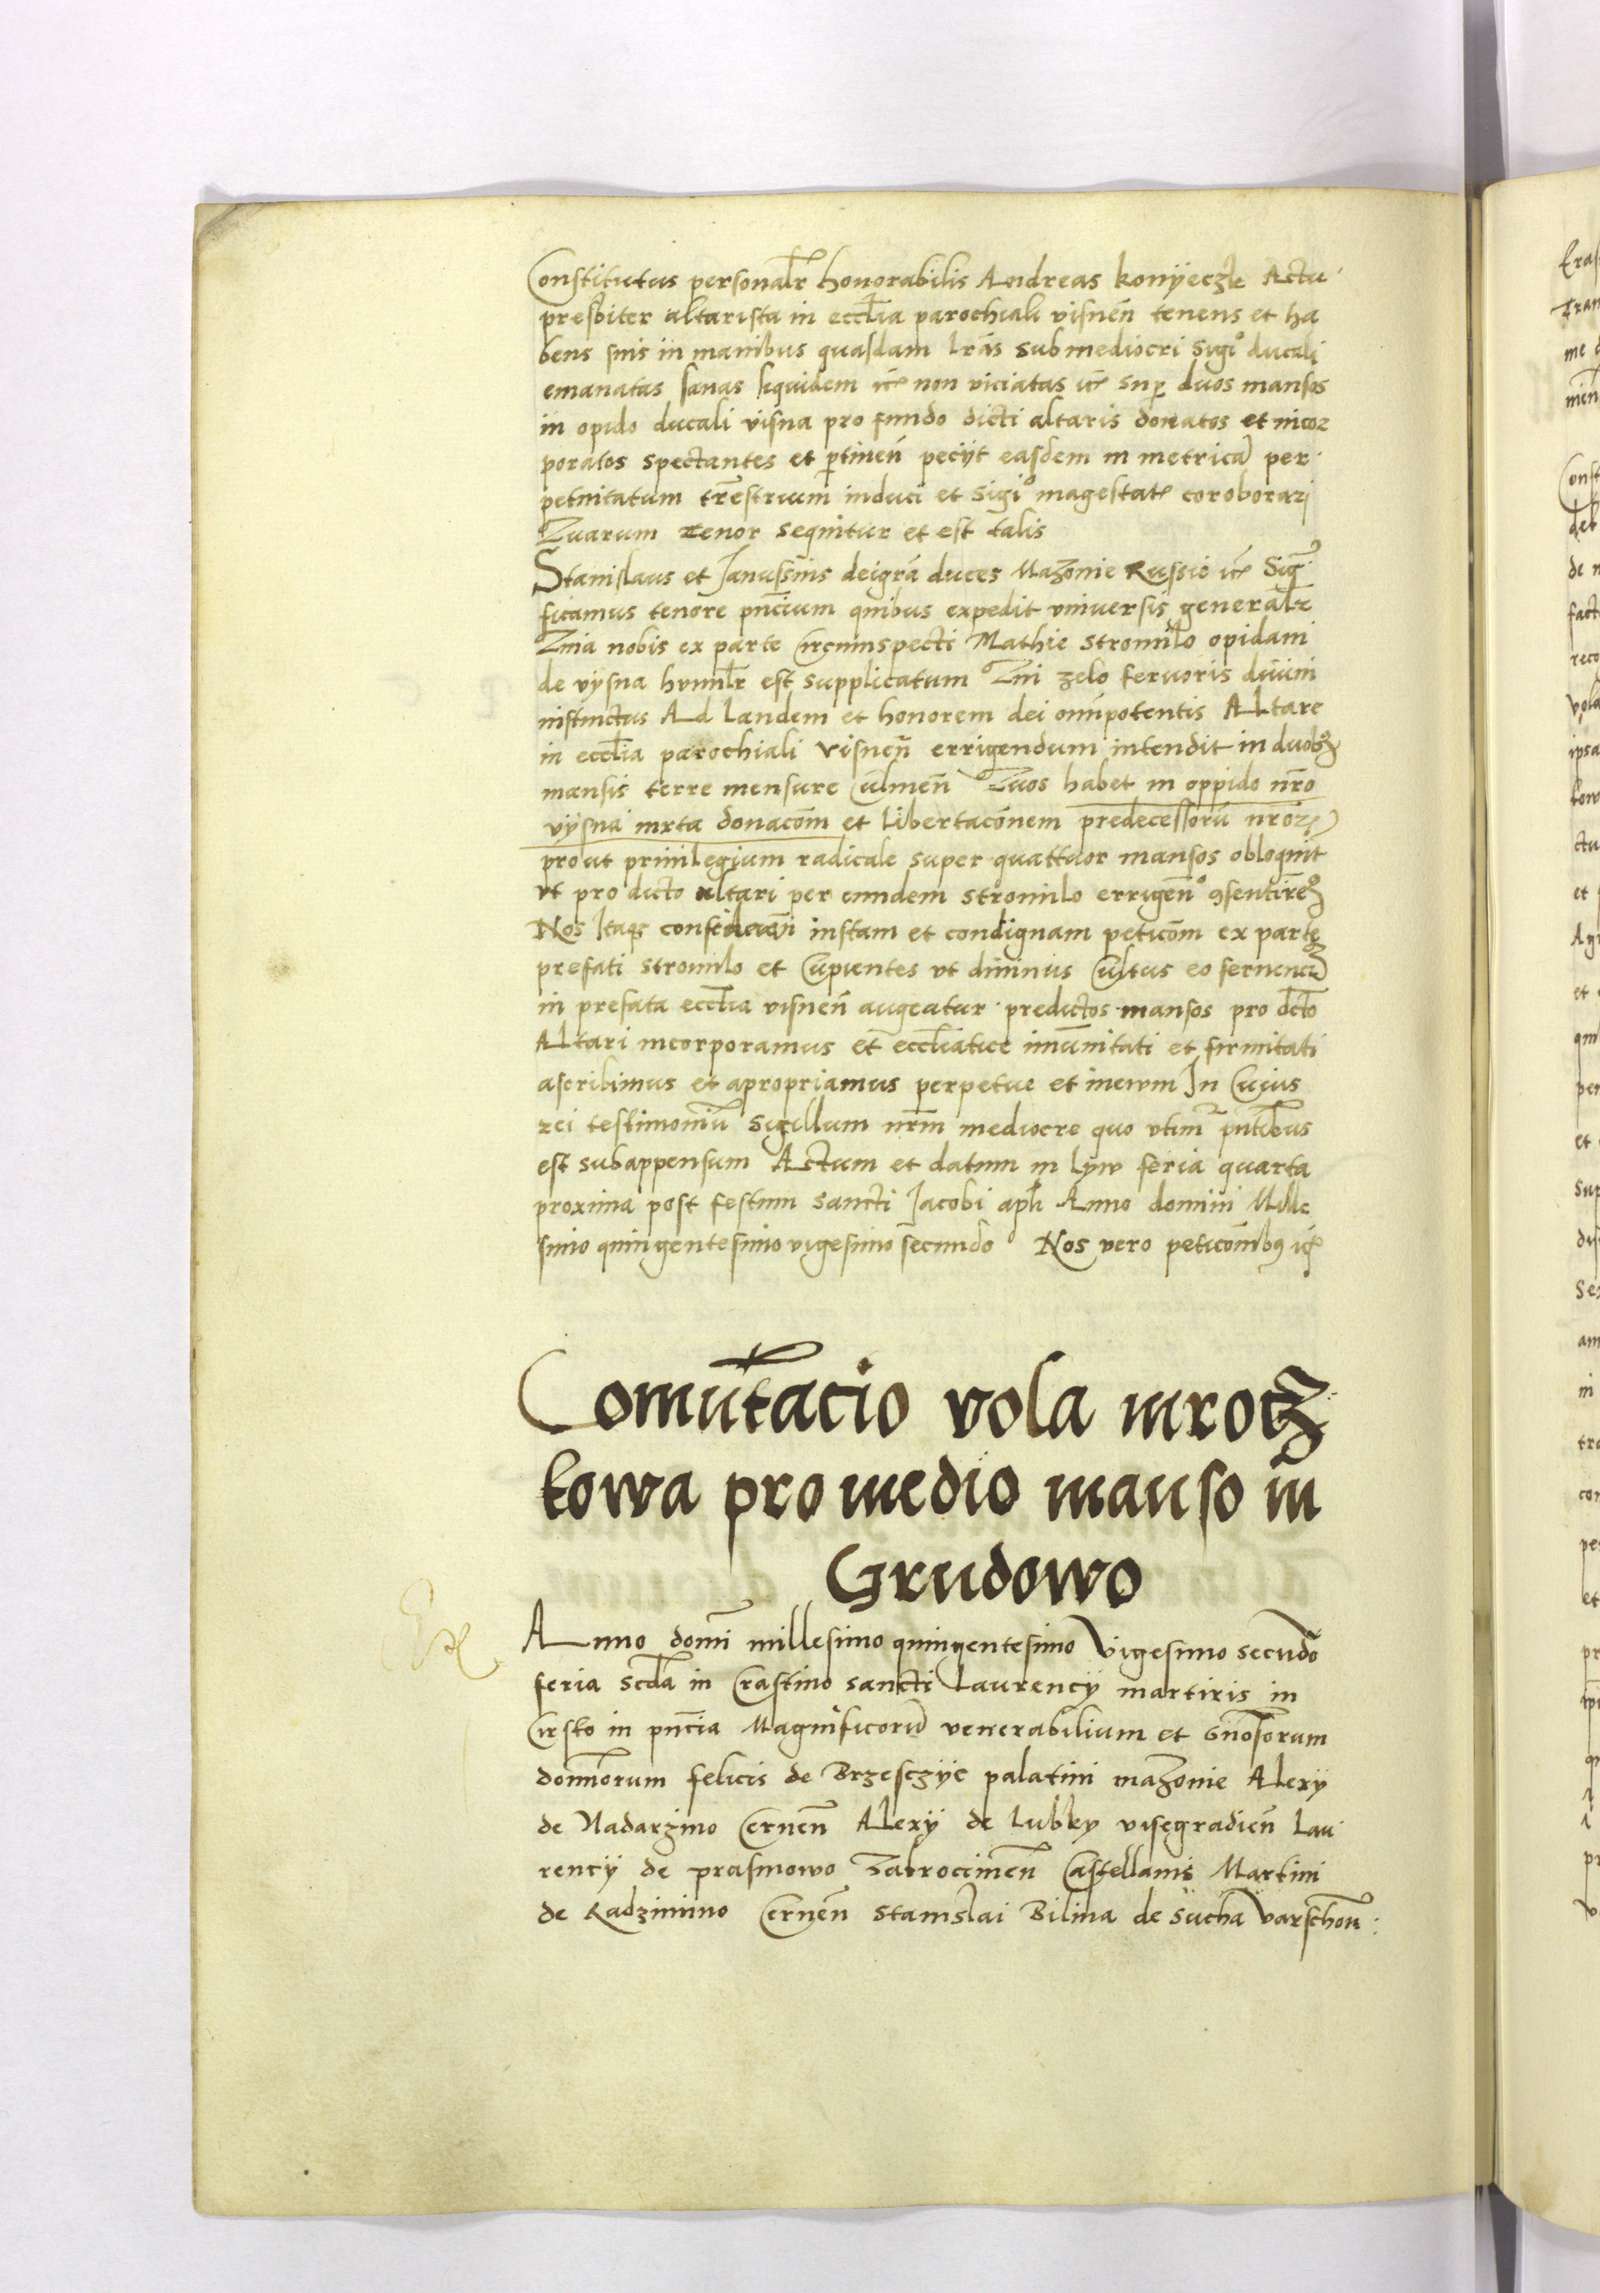 Constitutus personalr honorabilis Andreas konÿeczle Actu
presbiter altarista in ecclia parochiali visnen̄ tenens et ha
bens suis in manibus quasdam lr̄as sub mediocri sigo ducali
emanatas sanas siquidem etc non viciatas etc sup duos mansos
in opido ducali visna pro fundo dicti altaris donatos et incor
poratos spectantes et ptinen̄ peciit easdem in metricā per
petuitatum trrestrium induci et sigio magestatis coroborari
Quarum tenor sequitur et est talis
Stanislaus et Janussius dei grā duces Mazouie Russie etc Sig
ficamus tenore pn̄cium quibus expedit vniuersis generalr
Quia nobis ex parte circumspecti Mathie stromilo opidani
de vysna humilr est supplicatum Qui zelo feruoris diuini
instinctus Ad laudem et honorem dei omīpotentis Altare
in eccl̄ia parochiali visnen̄ errigendum intendit in duobꝫ
mansis terre mensure Culmen̄ Quos habet in oppido nr̄o
vÿsna iuxta donacōm et libertacōnem predecessorū nr̄oꝝ
prout priuilegium radicale super quattuor mansos obloquit
vt pro dicto altari per eundem stromilo errigeno ꝯsentiremꝫ
Nos Itaqꝫ considerāti iustam et condignam peticōm ex parte
prefati stromilo et Cupientes vt diuinus Cultus eo feruenciꝰ
in prefata eccl̄ia visnen̄ augeatur predictos mansos pro dcto
Altari incorporamus et eccl̄iatice imūnitati et firmitati
ascribimus et apropriamus perpetue et in ewm In Cuius
rei testimoniū sigillum nr̄m mediocre quo vtimr pn̄tibus
est subappensum Actum et datum in lyw feria quarta
proxima post festum sancti Jacobi apli Anno domini Mille
simo quingentesimo vigesimo secundo Nos vero peticōnibꝰ etc
Comūtacio vola mrocz
kowa pro medio manso in
Grudowo
Anno domī millesimo quingentesimo Vigesimo secūdo
feria scda in Crastino sancti Laurencÿ martiris in
Cirsko in pn̄cia Magnificorū venerabilium et Gn̄osorum
domnorum felicis de Brzesczÿe palatini mazouie Alexÿ
de Nadarzino Cernen̄ Alexÿ de lubky visegradien̄ lau
rencÿ de prasmowo Zakroczimen̄ Castellanis Martini
de Radzimino Cernen̄ stanislai Bilina de sucha Varschouiē